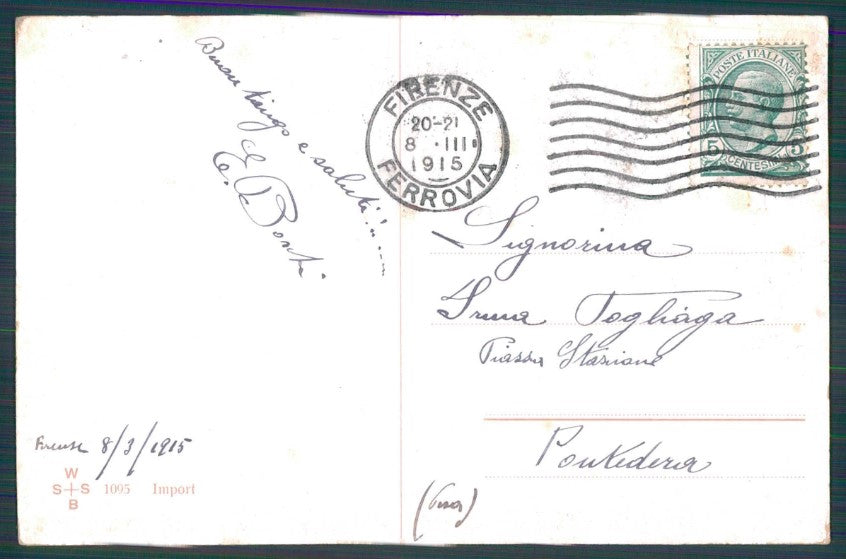 Buon tango e saluti!!....
di
E. Ponti
FIRENZE
20-21
8 .III.
1915
FERROVIA
POSTE ITALIANE
5 5
CENTESIMI
Signorina
Irma Togliaga
Piazza Stazione
Pontedera
(Pisa)
Firenze 8/3/1915
W
S S
B
1095 Import